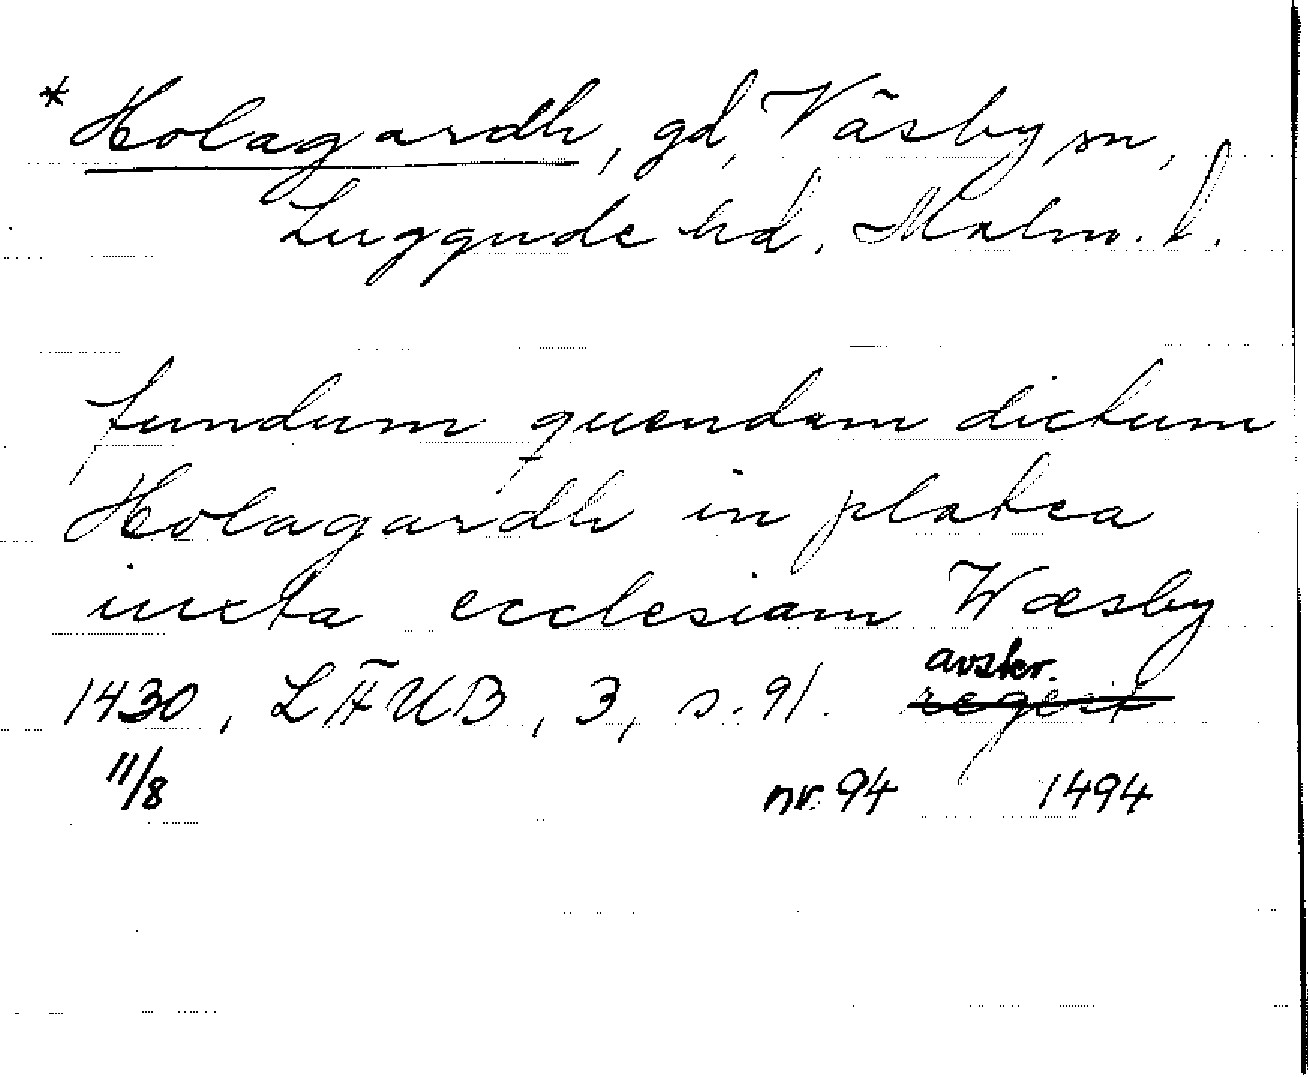 *Holagardh, gd, Väsby sn,
Luggude hd. Malm. l.
fundum quendam dictum
Holagardh in platea
iuxta ecclesiam Wæsby
avskr.
1430, LÄUB, 3, s. 91.
11/8 nr. 94 1494